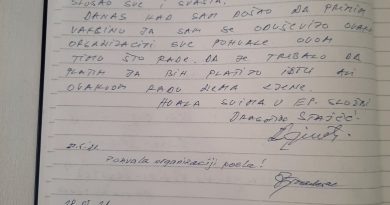 SLUŠAO SVE I SVAŠTA.
DANAS KAD SAM DOŠAO DA PRIMIM
JA SAM SE ODUŠEVIO OVAKO
ORGANIZACIJI SVE POHVALE OVOM
TIMU ŠTO RADE. DA JE TREBALO DA
PLATIM JA BIH PLATIO ISTU ALI
OVAKVOM RADU NEMA CJENE.
HVALA SVIMA U EP.
DRAGOTIN STAJČIĆ
Pohvala organizaciji posla!